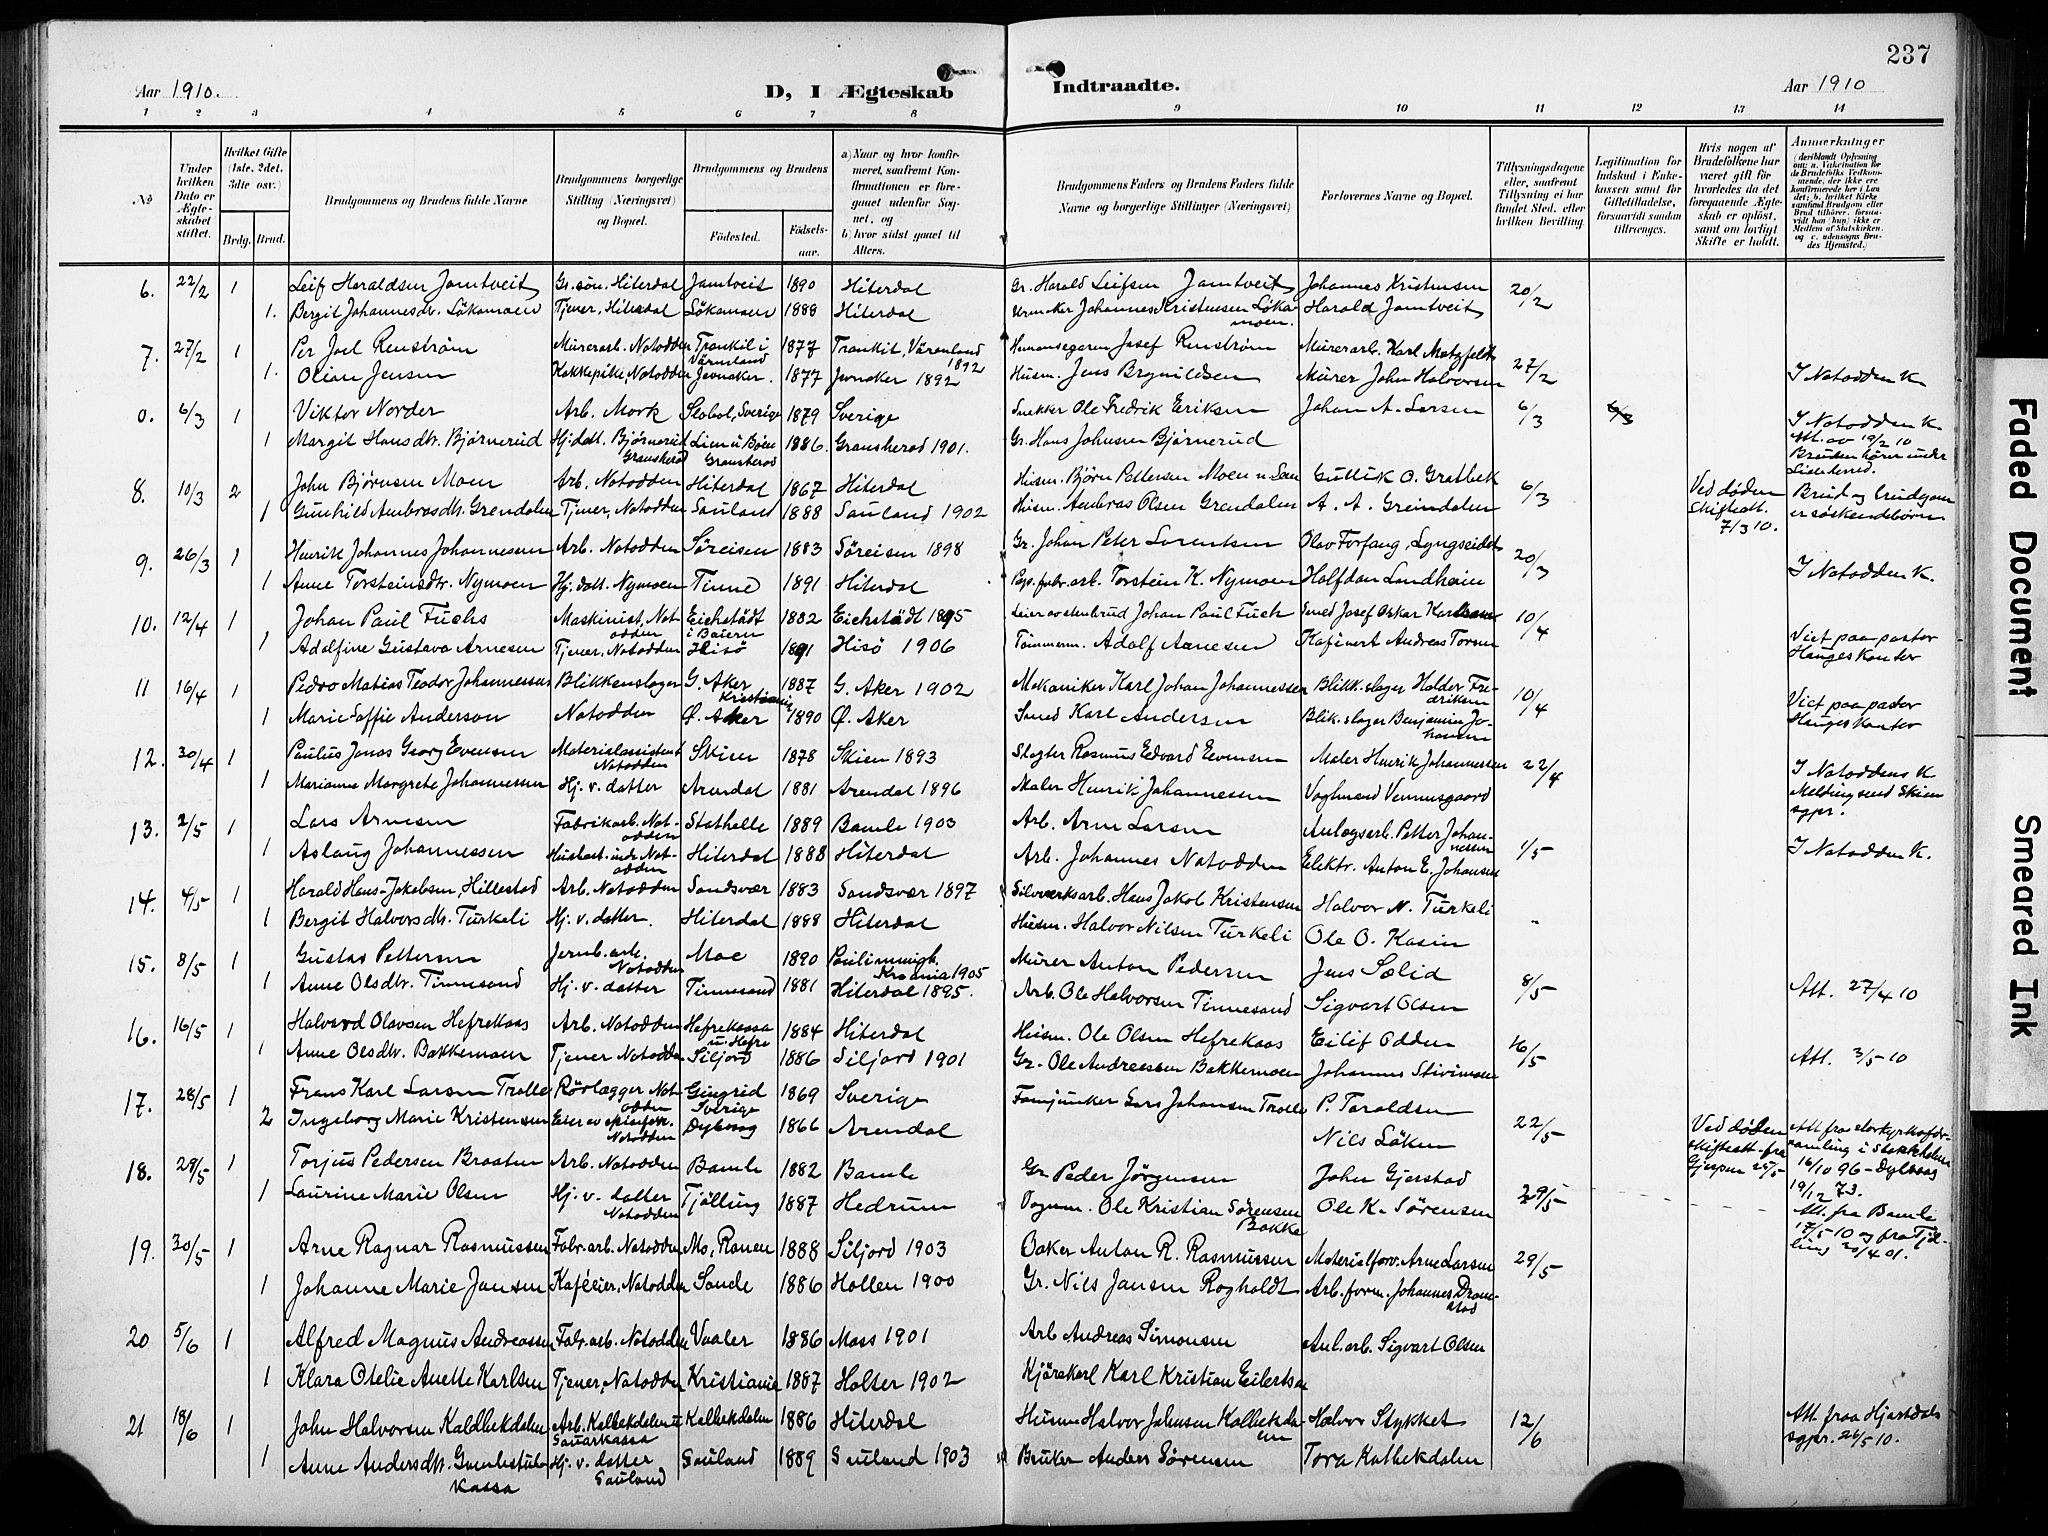 237
Aar 1910. D, I Ægteskab Indtraadte. Aar 1910
1 2 3 4 5 6 7 8 9 10 11 12 13 14
No
Under hvilken Dato er Ægteskabet stiftet.
Hvilket Gifte (1ste, 2det, 3die osv.)
Brdg. Brud.
Brudgommens og Brudens fulde Navne
Brudgommens borgerlige Stilling (Næringsvei) og Bopæl.
Brudgommens og Brudens
Fødested. Fødselsaar.
a) Naar og hvor konfirmeret, saafremt Konfirmationen er foregaaet udenfor Sognet, og
b) hvor sidst gaaet til Alters.
Brudgommens Faders og Brudens Faders fulde Navne og borgerlige Stillinger (Næringsvei)
Forlovernes Navne og Bopæl.
Tillysningsdagene eller, saafremt Tillysning ei har fundet Sted, efter hvilken Bevilling.
Legitimation for Indskud i Enkekassen samt for Giftetilladelse, forsaavidt saadan tiltrænges.
Hvis nogen af Brudefolkene har været gift før hvorledes da det foregaaende Ægteskab er opløst, samt om lovligt Skifte er holdt.
Anmærkninger
(deriblandt Oplysning om: a. Vakcination for Brudefolks Vedkommende, der ikke ere konfirmerede her i Landet; b. hvilket Kirkesamfund Brudgom eller Brud tilhører, forsaavidt han (hun) ikke er Medlem af Statskirken, og c. udensogns Brudes Hjemsted.)
6. 22/2 1 Leif Haraldsen Jamtveit Gr. søn, Hiterdal Jamtveit 1890 Hiterdal Gr. Harald Leifsen Jamtveit Johannes Kristensen 20/2
1. Bergit Johannesdtr. Lökamoen Tjener, Hiterdal Lökamoen 1888 Hiterdal Johannes Kristensen Lökamoen. Harald Jamtveit
7. 27/2 1 Per Joel Renström Murerarb. Notodden Trankil i Värmland 1877 Trankil, Värmland 1892 Josef Renström Murerarb. Karl Metzfeldt 27/2
1. Olian Jensen Kokkepike, Notodden Jevnaker. 1877 Jevnaker 1892 Husm. Jens Brynildsen Murer John Halvorsen I Notodden K.
0. 6/3 1 Viktor Norder Arb. Mork Slobol, Sverige 1879 Sverige Snekker Ole Fredrik Eriksen Johan A. Larsen 6/3 6/3 I Notodden K.
1 Margit Hansdtr. Bjørnerud Hj. datt. Bjørnerud Gransherad Lien u Böen Gransherad 1886 Gransherad 1901. Gr. Hans Johnsen Bjørnerud Att. av 19/2 10 Bruden hører under Lilleherred.
8. 10/3 2 John Björnsen Moen Arb. Notodden Hiterdal 1867 Hiterdal Husm. Björn Pettersen Moen Guttuk O. Gratbek 6/3 Ved døden Skifteatt. 7/3 10. Brud og brudgom er søskendebörn
1 Gunhild Ambrosdtr. Grendalen Tjener, Notodden Sauland 1888 Sauland 1902 Husm. Ambros Olsen Grendalen A. A. Greindalen
9. 26/3 1 Henrik Johannes Johannessen Arb. Notodden Søreisen 1883 Søreisen 1898 Gr. Johan Peter Lorentsen Olav Forfang, Lyngseidet 20/3
1 Anne Torsteinsdtr. Nymoen Hj. datt. Nymoen Tinne 1891 Hiterdal Torstein K. Nymoen Halfdan Landheim I Notodden K.
10. 12/4 1 Johan Paul Fuchs Maskinist, Notodden Eichstädt i Baiern 1882 Eichstädt 1895 Johan Paul Fuch Smed Josef Oskar Karlsson 10/4
1 Adolfine Gustava Arnesen Tjener, Notodden Hisö 1891 Hisö 1906 Tømmerm. Adolf Arnesen Kafévert Andreas Torsen Viet paa pastor Hauges kontor
11 16/4 1 Pedro Matias Teodor Johannessen Blikkenslager G. Aker Kristiania 1887 G. Aker 1902 Mekaniker Karl Johan Johannessen Blikk. slager Haldor Fredriksen 10/4
1 Marie Soffie Anderson Notodden Ø. Aker 1890 Ø. Aker Smed Karl Andersen Blik. slager Benjamin Johansen Viet paa pastor Hauges kontor
12. 30/4 1 Paulus Jonas Georg Evensen Materialassistent Notodden Skien 1878 Skien 1893 Slagter Rasmus Edvard Evensen Maler Henrik Johannessen 22/4
1 Marianne Margrete Johannessen Hj. v. datter Arendal 1881 Arendal 1896 Maler Henrik Johannessen Vaghmand Vennusgaard I Notoddens K Melding send Skien sgpr.
13. 2/5 1 Lars Arnesen Fabrikarb. Notodden Stathelle 1889 Bamle 1903 Arb. Arne Larsen Anlegsarb. Petter Johannessen 1/5
1 Aslaug Johannessen Notodden Hiterdal 1888 Hiterdal Arb. Johannes Notodden Elektr. Anton E. Johansen I Notodden K.
14. 4/5 1 Harald Hans-Jakobsen, Hillestad Arb. Notodden Sandsvær 1883 Sandsvær 1897 Sølvverksarb. Hans Jakob Kristensen Halvor N. Turkeli
1 Bergit Halvorsdtr. Turkeli Hj. v. datter. Hiterdal 1888 Hiterdal Husm. Halvor Nilsen Turkeli Ole O. Kasin -
15. 8/5 1 Gustav Pettersen Jernb. arb. Notodden Moe 1890 Kr.ania 1905 Murer Anton Pedersen Jens Sælid 8/5
1 Anne Olsdtr. Tinnesand Hj. v. datter Tinnesand 1881 Hiterdal 1895. Arb. Ole Halvorsen Tinnesand Sigvart Olsen Att. 27/4 10
16. 16/5 1 Halvord Olavsen Hefrekaas Arb. Notodden Hefrekaasa u Hefre 1884 Hiterdal Husm. Ole Olsen Hefrekaas Eilif Odden 16/5
1 Anne Olsdtr. Bakkemoen Tjener Notodden Siljord 1886 Siljord 1901 Gr. Ole Andreassen Bakkemoen Johannes Stivimoen Att. 3/5 10
17. 28/5 1 Frans Karl Larsen Trolle Rörlægger Notodden Gingrid Sverige 1869 Sverige Fanjunker Lars Johansen Trolle P. Toraldsen 22/5
2 Ingeborg Marie Kristensen Notodden Dybvaag 1866 Arendal Nils Löken Ved døden skifteatt. fra Gjerpen 25/5 Att. fra storkyrkoförsamling i Stockholm 16/10 96 - Dybvaag 19/12 73.
18. 29/5 1 Torjus Pedersen Braaten Arb. Notodden Bamle 1882 Bamle Gr. Peder Jörgensen John Gjerstad 29/5
1 Laurine Marie Olsen Hj. v. datter Notodden Tjölling 1887 Hedrum Vognm. Ole Kristian Sörensen Bakke Ole K. Sörensen Att. fra Bamle 17/5-10 og fra Tjölling 20/4 01.
19. 30/5 1 Arne Ragnar Rasmussen Fabr. arb. Notodden Mo, Ranen 1888 Siljord 1903 Baker Anton R. Rasmussen Materialforv. Arne Larsen 29/5
1 Johanne Marie Jansen Kaféeier, Notodden Sande 1886 Hollen 1900 Gr. Nils Jansen Rogholdt Arb. form. Johannes Dramstad
20 5/6 1 Alfred Magnus Andreassen Fabr. arb. Notodden Vaaler 1886 Moss 1901 Arb Andreas Simonsen Anl. arb. Sigvart Olsen
1 Klara Otelie Anette Karlsen Tjener, Notodden Kristiania 1887 Holter 1902 Kjörekarl Karl Kristian Eilertsen
21 18/6 1 John Halvorsen Kaldbekdalen Arb. Kalbekdalen u Sauarkassa Kalbekdalen 1886 Hiterdal Husm Halvor Johnsen Kalbekdalen Halvor Stykket 12/6 Att. fraa Hjartdals sgpr. 26/5 10.
1 Anne Andersdtr. Gamlestulkassa Hj. v. datter Sauland Sauland 1889 Sauland 1903 Bruker Anders Sörensen Tora Kalbekdalen
Faded Document
Smeared Ink